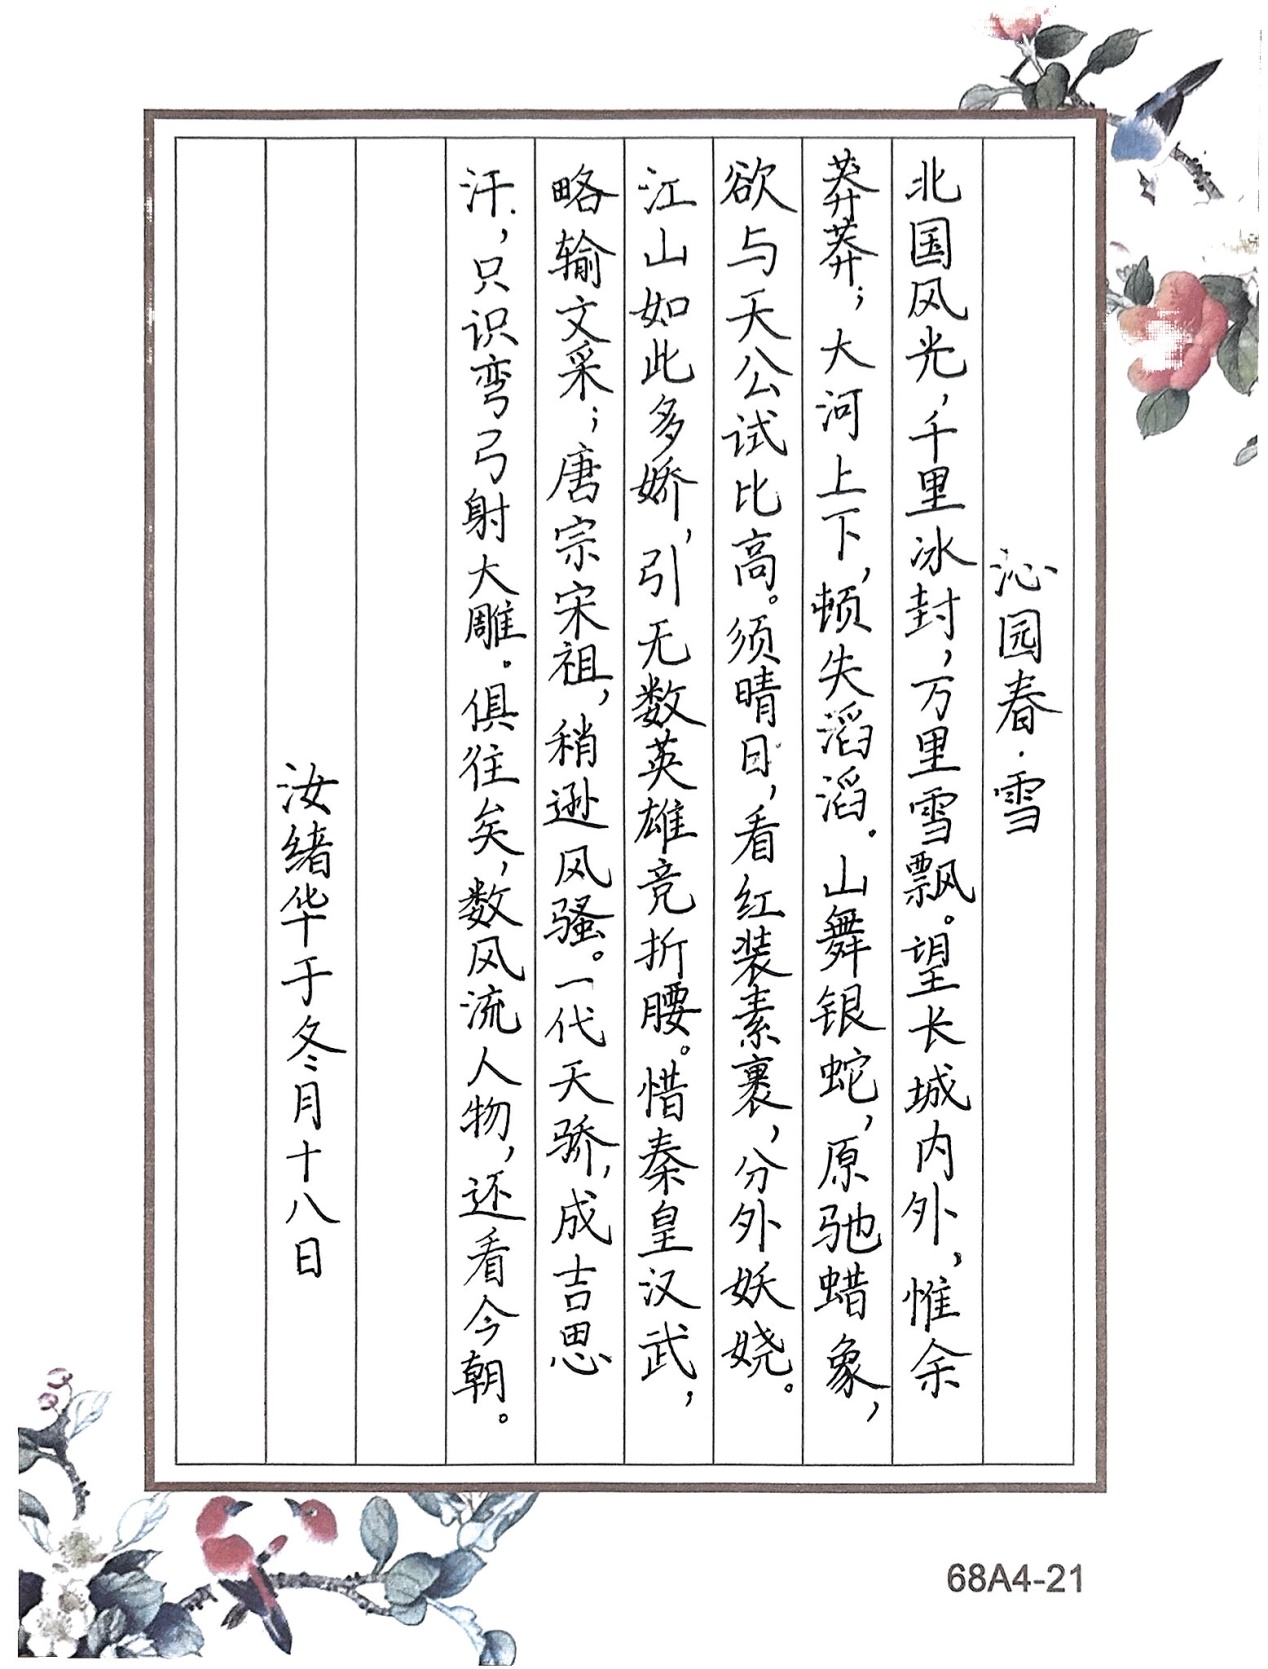 沁园春·雪
北国风光，千里冰封，万里雪飘。望长城内外，惟余
莽莽；大河上下，顿失滔滔。山舞银蛇，原驰蜡象，
欲与天公试比高。须晴日，看红装素裹，分外妖娆。
江山如此多娇，引无数英雄竞折腰。惜秦皇汉武，
略输文采；唐宗宋祖，稍逊风骚。一代天骄，成吉思
汗，只识弯弓射大雕。俱往矣，数风流人物，还看今朝。
汝绪华于冬月十八日
68A4-21